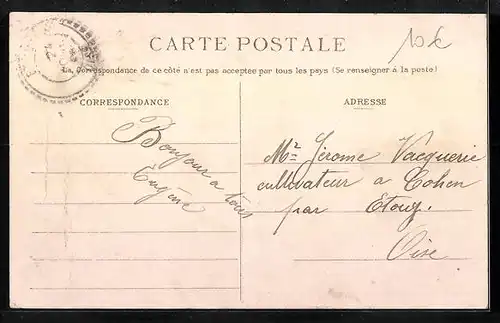 CARTE POSTALE
10€
La Correspondance de ce côté n'est pas acceptée par tous les pays (Se renseigner à la poste)
CORRESPONDANCE
ADRESSE
Bonjour a tous
Eugène
Mr Jérome Vacquerie
cultivateur a Cohen
par Etouy.
Oise